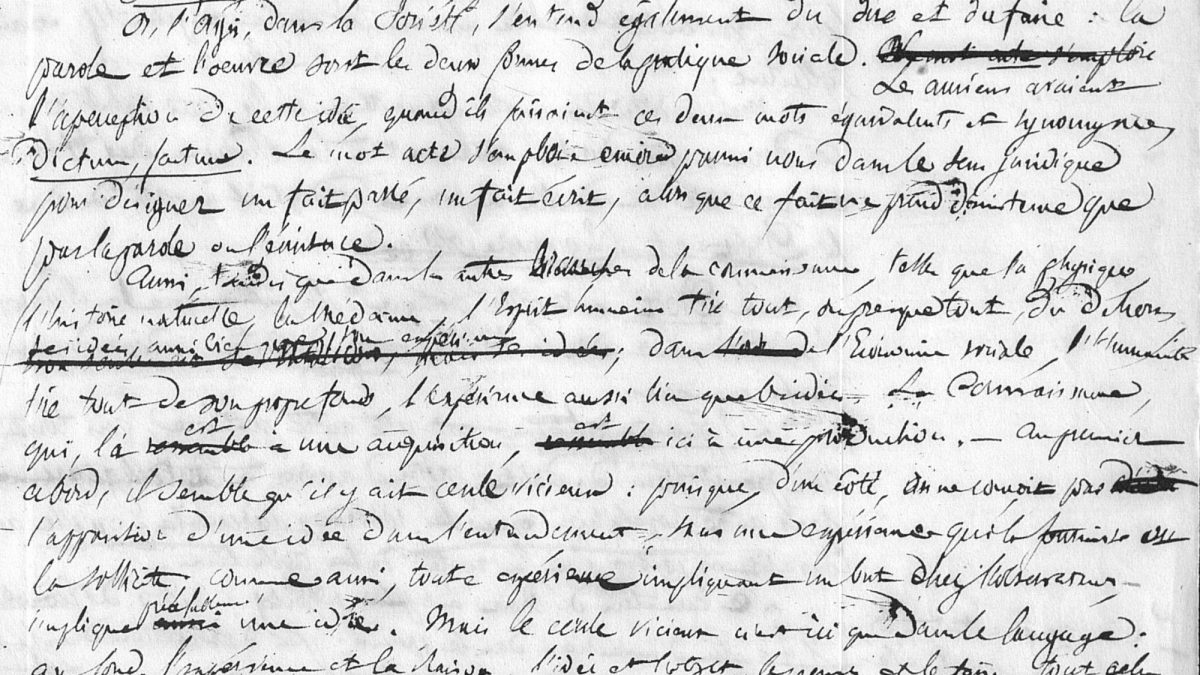 Or, l'agir, dans la Société, s'entend également du dire et du faire : la
parole et l'oeuvre sont les deux formes de la pratique sociale.
Les anciens avaient
l'aperception de cette idée, quand ils faisaient ces deux mots équivalents et synonymes,
dictum, factum. Le mot acte s'emploie encore parmi nous dans le sens juridique
pour désigner un fait passé, un fait écrit, alors que ce fait ne prend d'existence que
par la parole ou l'écriture.
Aussi, tandis que dans les autres branches de la connaissance, telles que la physique,
l'histoire naturelle, la médecine, l'Esprit humain tire tout, ou presque tout, du dehors,
ses idées aussi bien que son expérience ; dans de l'Economie sociale, l'Humanité
tire tout de son propre fonds, l'expérience aussi bien que les idées. La Connaissance,
qui, là est une acquisition, est ici une production. — Au premier
abord, il semble qu'il y ait cercle vicieux : puisque, d'un côté, on ne conçoit pas
l'apparition d'une idée dans l'entendement sans une expérience qui la fournisse ou
la sollicite, comme aussi, toute expérience impliquant un but chez l'observateur,
implique préalablement une idée. Mais le cercle vicieux n'est ici que dans le langage :
au fond, l'expérience et la Raison, l'idée et l'objet, tout cela